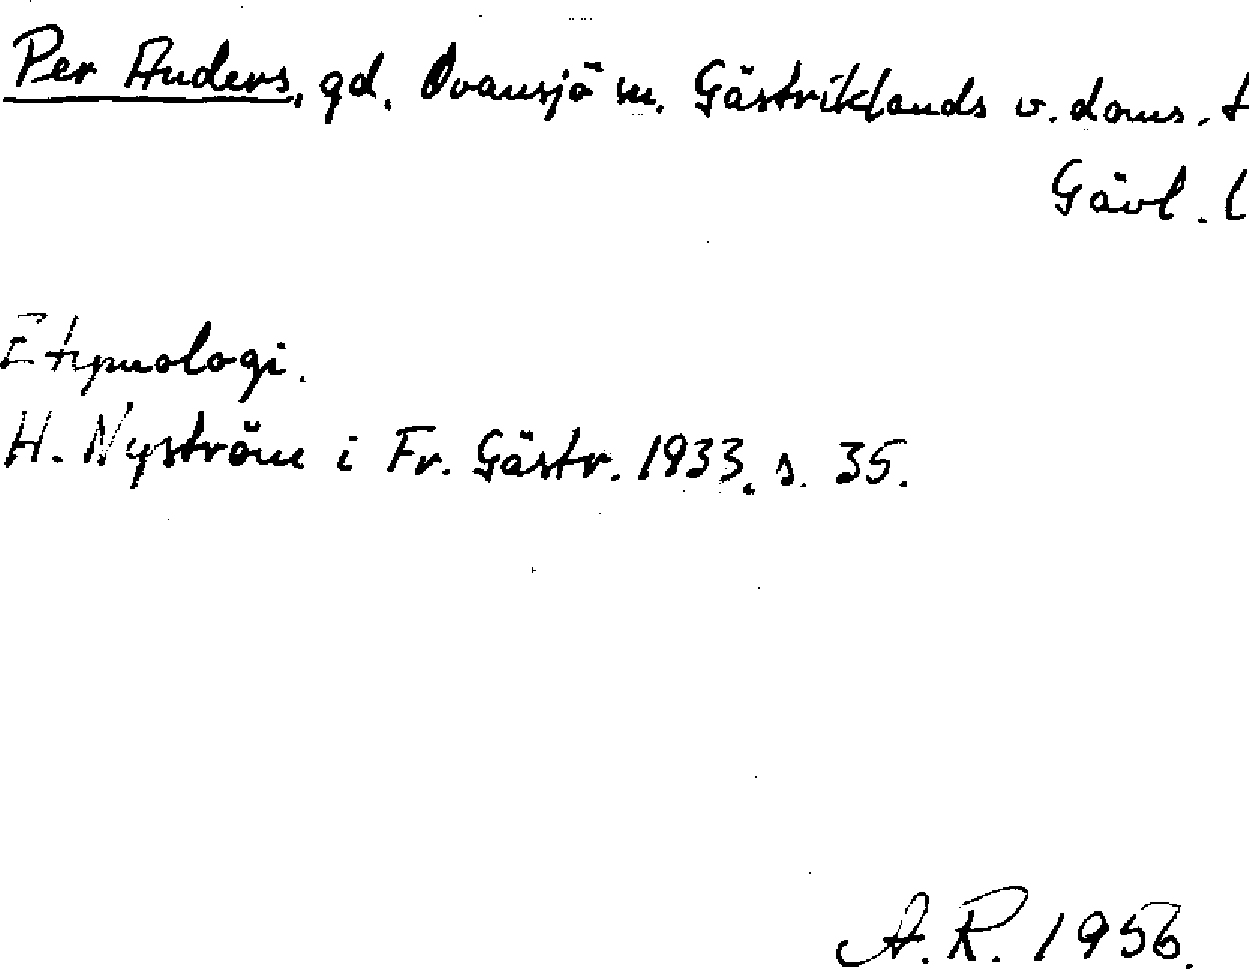 Per Anders, gd. Ovansjö sn. Gästriklands v. doms. t
Gävl. l
Etymologi.
H. Nyström i Fr. Gästr. 1933. s. 35.
A.R. 1956.